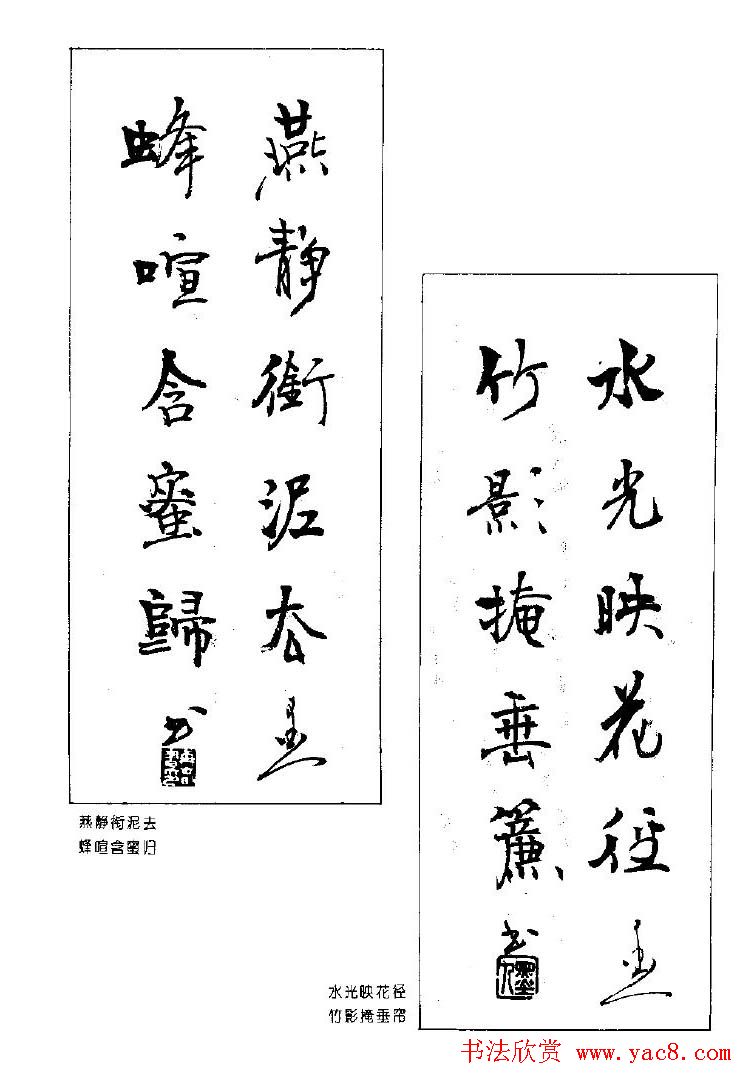 燕靜銜泥去
蜂喧含蜜歸
书
燕静衔泥去
蜂喧含蜜归
水光映花徑
竹影掩垂簾
书
水光映花径
竹影掩垂帘
书法欣赏 www.yac8.com